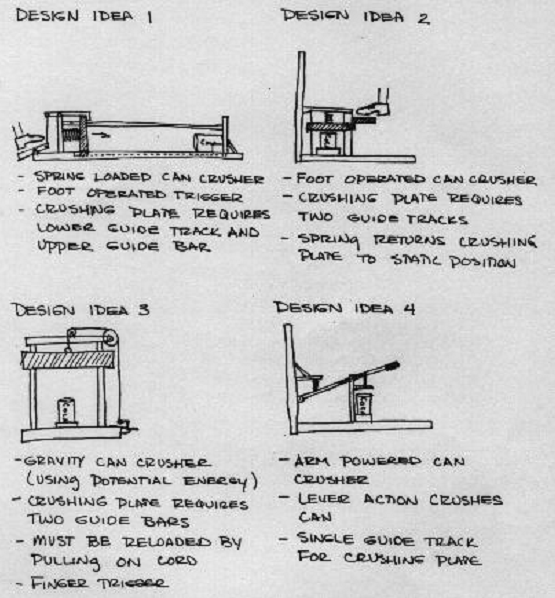 DESIGN IDEA 1
- SPRING LOADED CAN CRUSHER
- FOOT OPERATED TRIGGER
- CRUSHING PLATE REQUIRES
LOWER GUIDE TRACK AND
UPPER GUIDE BAR
DESIGN IDEA 2
- FOOT OPERATED CAN CRUSHER
- CRUSHING PLATE REQUIRES
TWO GUIDE TRACKS
- SPRING RETURNS CRUSHING
PLATE TO STATIC POSITION
DESIGN IDEA 3
- GRAVITY CAN CRUSHER
(USING POTENTIAL ENERGY)
- CRUSHING PLATE REQUIRES
TWO GUIDE BARS
- MUST BE RELOADED BY
PULLING ON CORD
- FINGER TRIGGER
DESIGN IDEA 4
- ARM POWERED CAN
CRUSHER
- LEVER ACTION CRUSHES
CAN
- SINGLE GUIDE TRACK
FOR CRUSHING PLATE